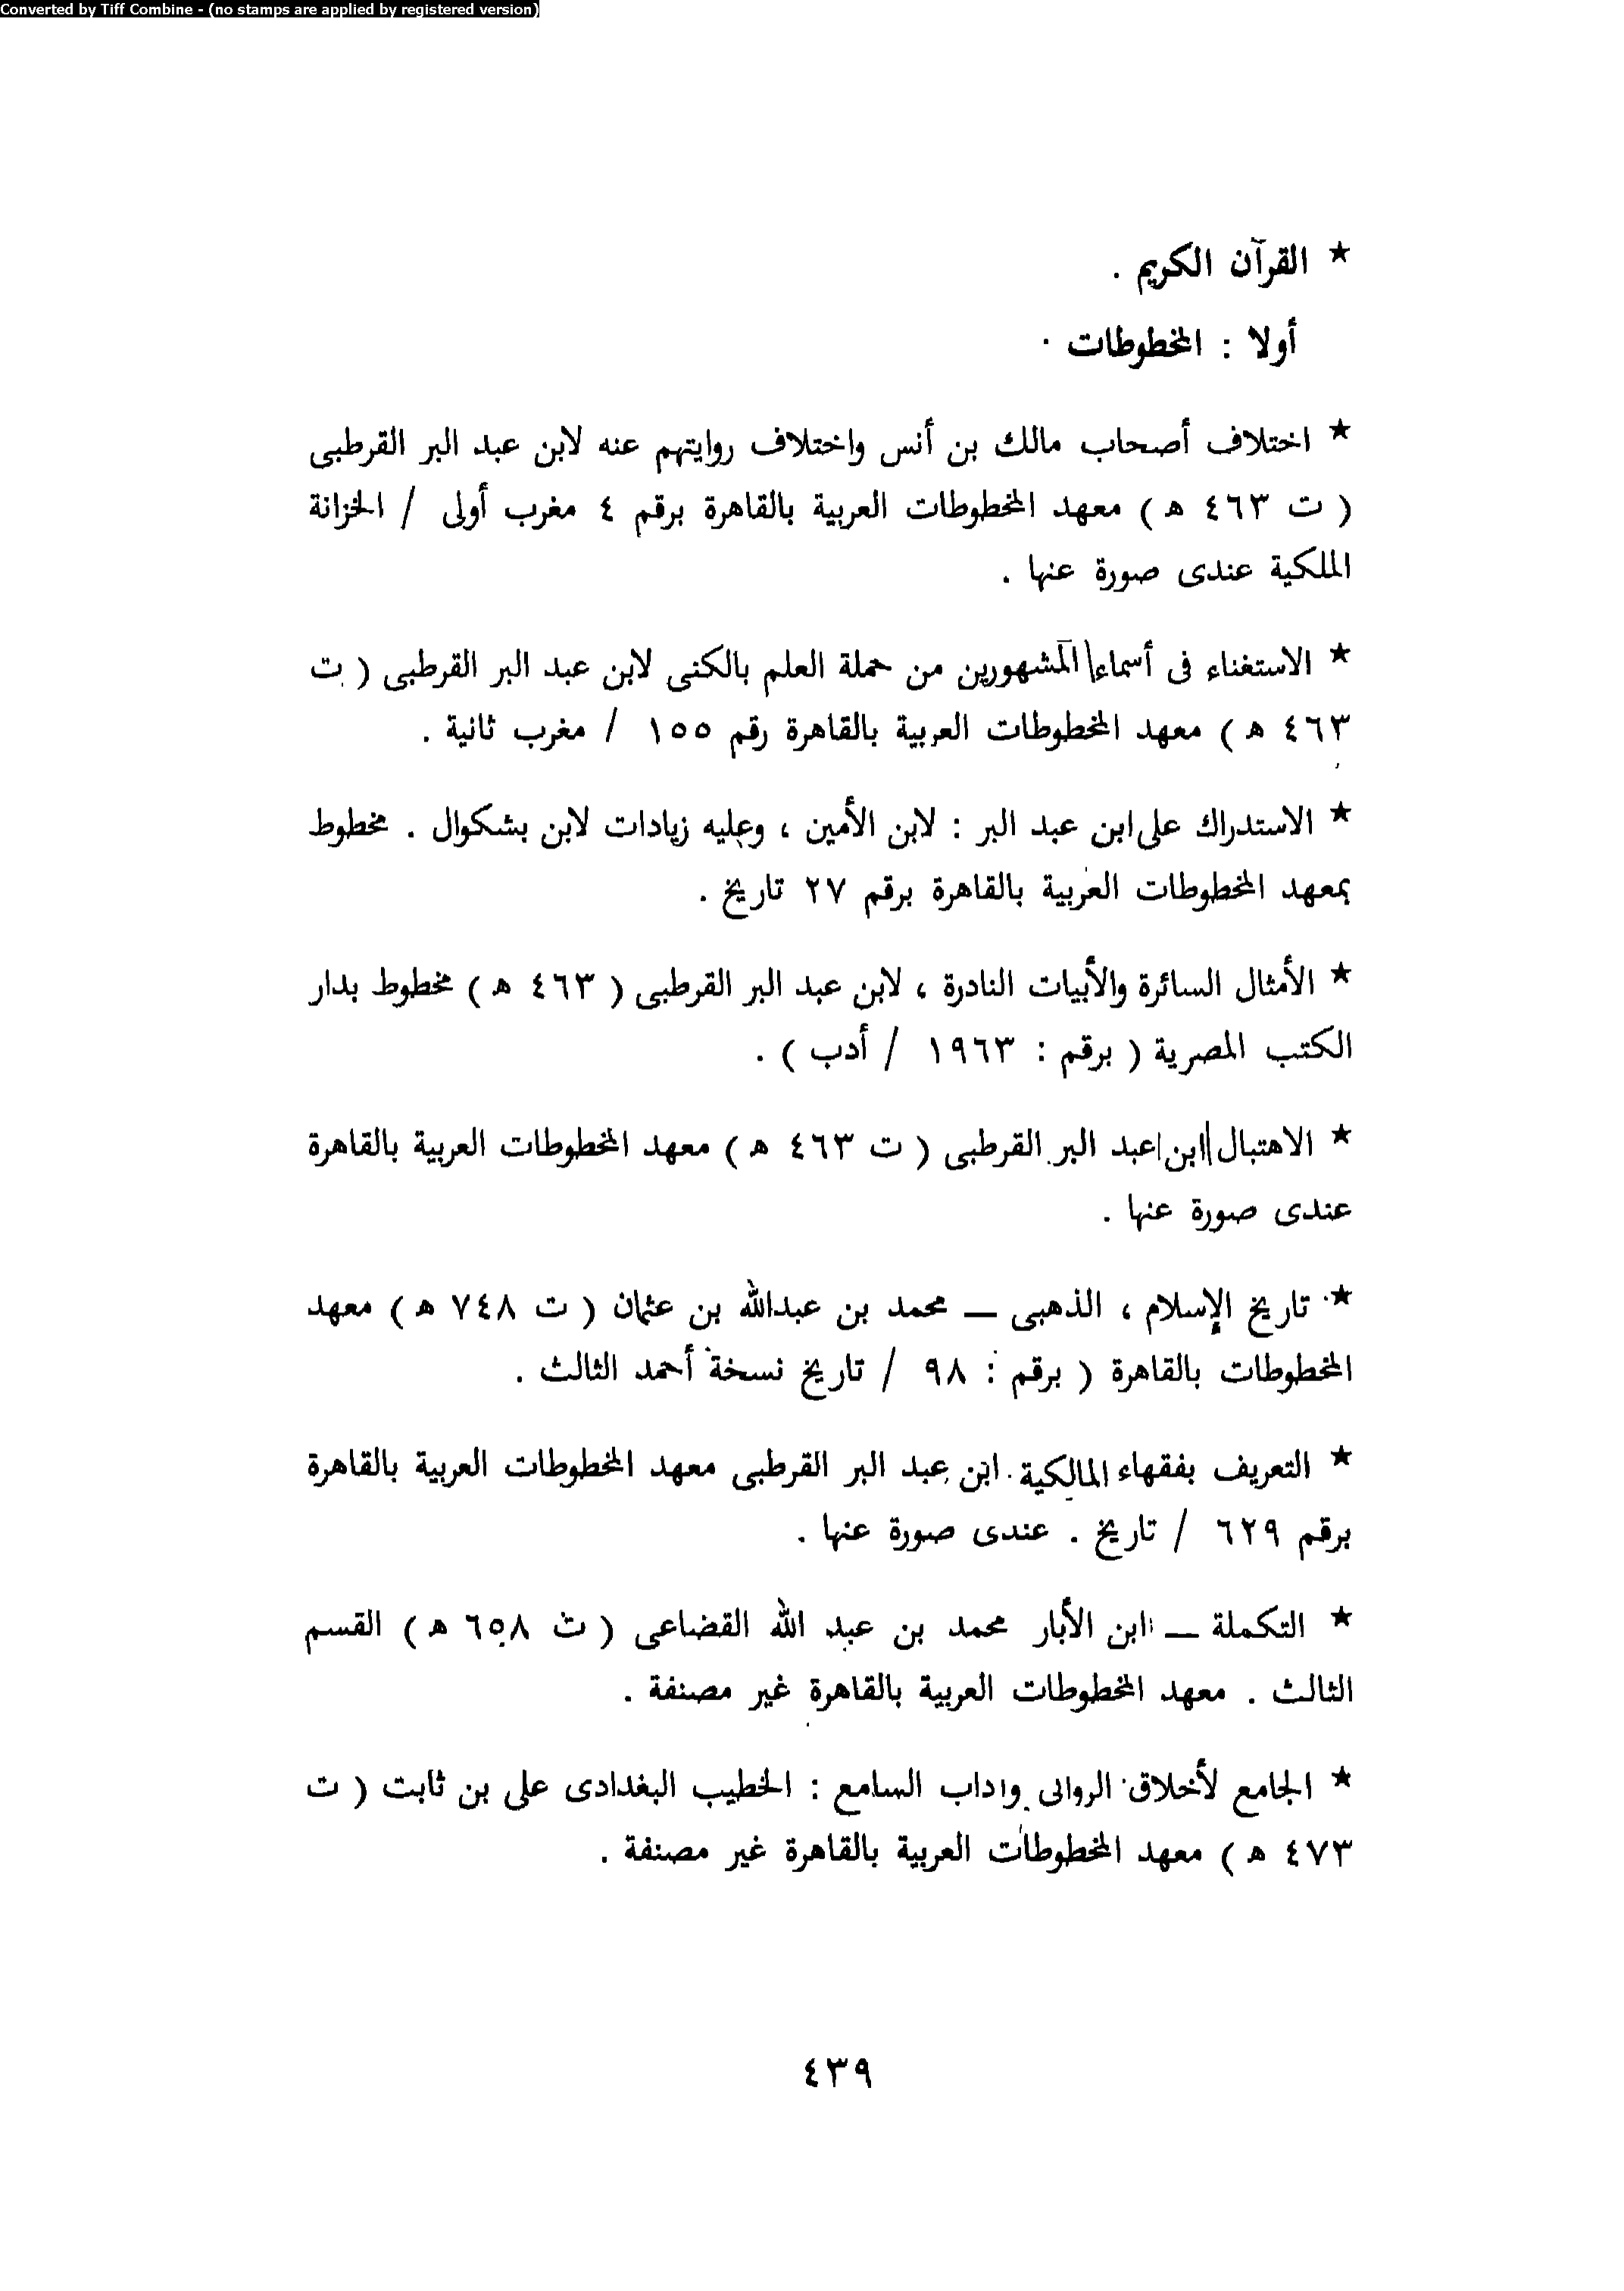 Converted by Tiff Combine - (no stamps are applied by registered version)
★ القرآن الكريم .
أولا : المخطوطات .
★ اختلاف أصحاب مالك بن أنس واختلاف روايتهم عنه لابن عبد البر القرطبى
( ت ٤٦٣ هـ ) معهد المخطوطات العربية بالقاهرة برقم ٤ مغرب أولى / الخزانة
الملكية عندى صورة عنها .
★ الاستغناء فى أسماء المشهورين من حملة العلم بالكنى لابن عبد البر القرطبى ( ت
٤٦٣ هـ ) معهد المخطوطات العربية بالقاهرة رقم ١٥٥ / مغرب ثانية .
★ الاستدراك على ابن عبد البر : لابن الأمين ، وعليه زيادات لابن بشكوال . مخطوط
بمعهد المخطوطات العربية بالقاهرة برقم ٢٧ تاريخ .
★ الأمثال السائرة والأبيات النادرة ، لابن عبد البر القرطبى ( ٤٦٣ هـ ) مخطوط بدار
الكتب المصرية ( برقم : ١٩٦٣ / أدب ) .
★ الاهتبال ابن عبد البر القرطبى ( ت ٤٦٣ هـ ) معهد المخطوطات العربية بالقاهرة
عندى صورة عنها .
★ تاريخ الإسلام ، الذهبى ــ محمد بن عبدالله بن عثمان ( ت ٧٤٨ هـ ) معهد
المخطوطات بالقاهرة ( برقم : ٩٨ / تاريخ نسخة أحمد الثالث .
★ التعريف بفقهاء المالكية . ابن عبد البر القرطبى معهد المخطوطات العربية بالقاهرة
برقم ٦٢٩ / تاريخ . عندى صورة عنها .
★ التكملة ــ ابن الأبار محمد بن عبد الله القضاعى ( ت ٦٥٨ هـ ) القسم
الثالث . معهد المخطوطات العربية بالقاهرة غير مصنفة .
★ الجامع لأخلاق الروالى واداب السامع : الخطيب البغدادى على بن ثابت ( ت
٤٧٣ هـ ) معهد المخطوطات العربية بالقاهرة غير مصنفة .
٤٣٩